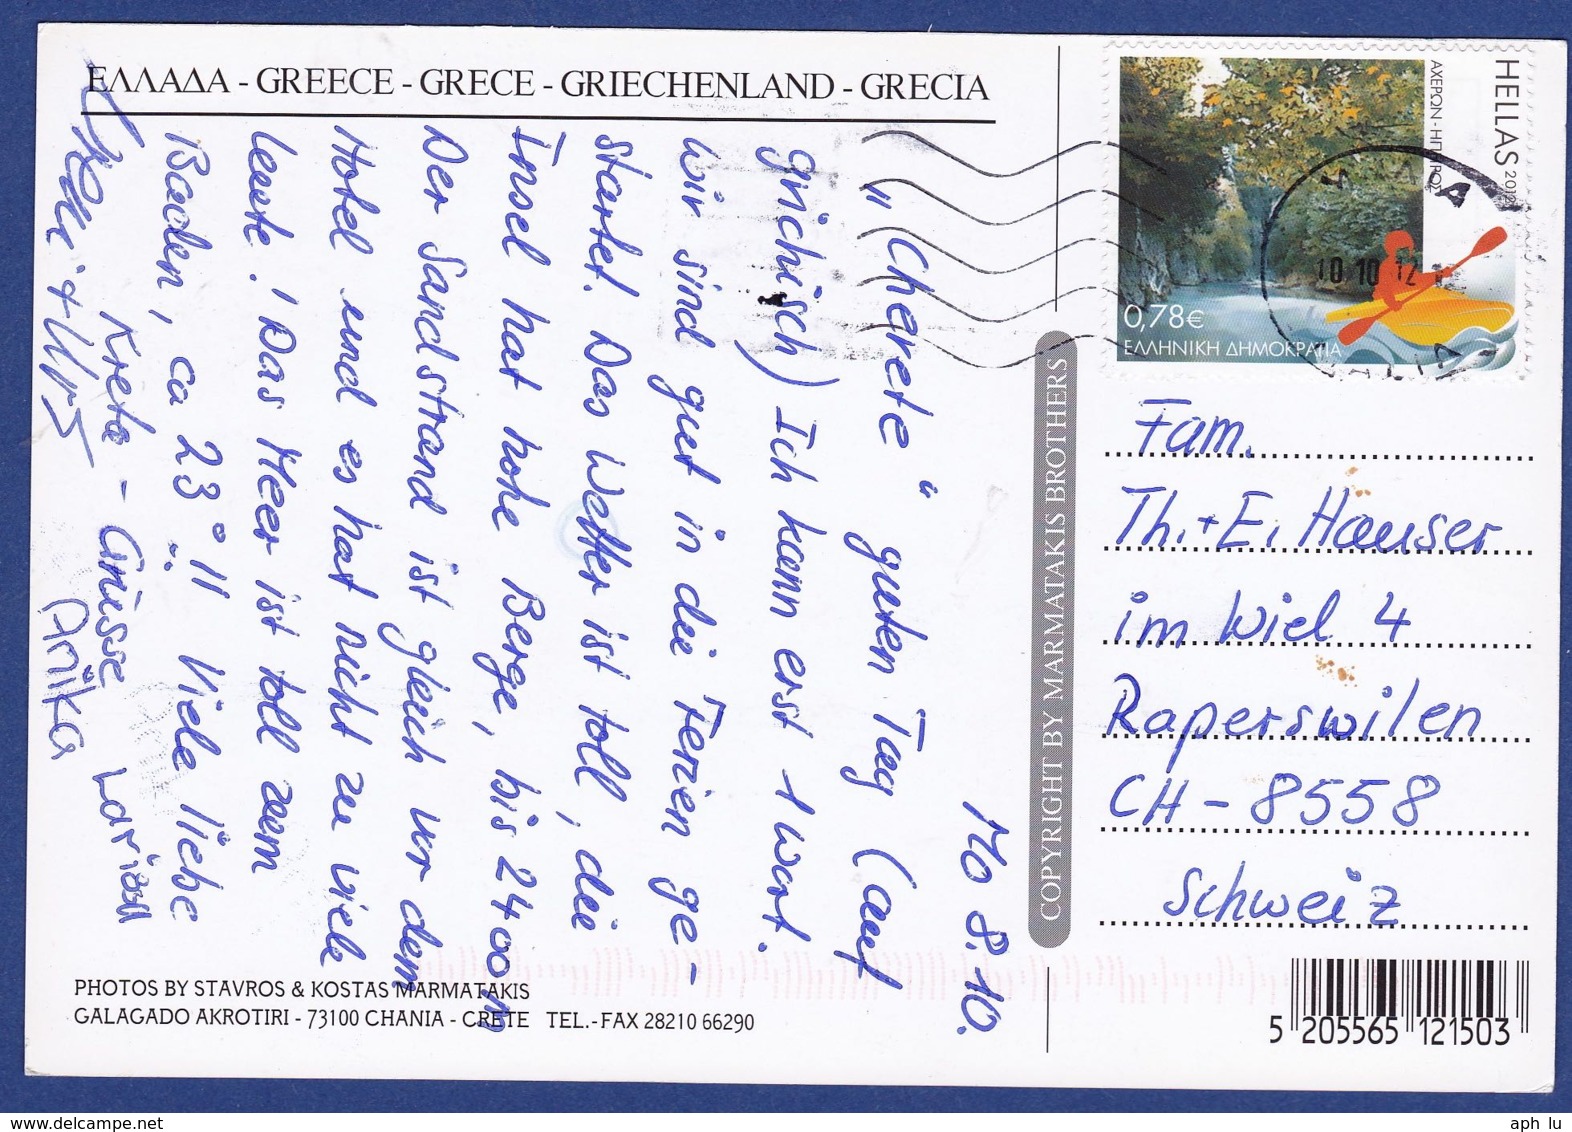 ΕΛΛΑΔΑ - GREECE - GRECE - GRIECHENLAND - GRECIA
Mo 8.10.
"Charete" guten Tag (auf
grichisch) Ich kann erst 1 Wort.
Wir sind gut in die Ferien ge-
startet. Das Wetter ist toll, die
Insel hat hohe Berge, bis 2400 m
Der Sandstrand ist gleich vor dem
Hotel und es hat nicht zu viele
Leute! Das Meer ist toll zum
Baden, ca 23°!! Viele liebe
Kreta - Grüsse
Anika
Larissa
+ Urs
HELLAS 2012
ΑΧΕΡΩΝ - ΗΠΕΙΡΟΣ
10.10.12
0,78€
ΕΛΛΗΝΙΚΗ ΔΗΜΟΚΡΑΤΙΑ
COPYRIGHT BY MARMATAKIS BROTHERS
Fam.
Th. + E. Hauser
im Wiel 4
Raperswilen
CH - 8558
Schweiz
PHOTOS BY STAVROS & KOSTAS MARMATAKIS
GALAGADO AKROTIRI - 73100 CHANIA - CRETE TEL.-FAX 28210 66290
5 205565 121503
aph lu